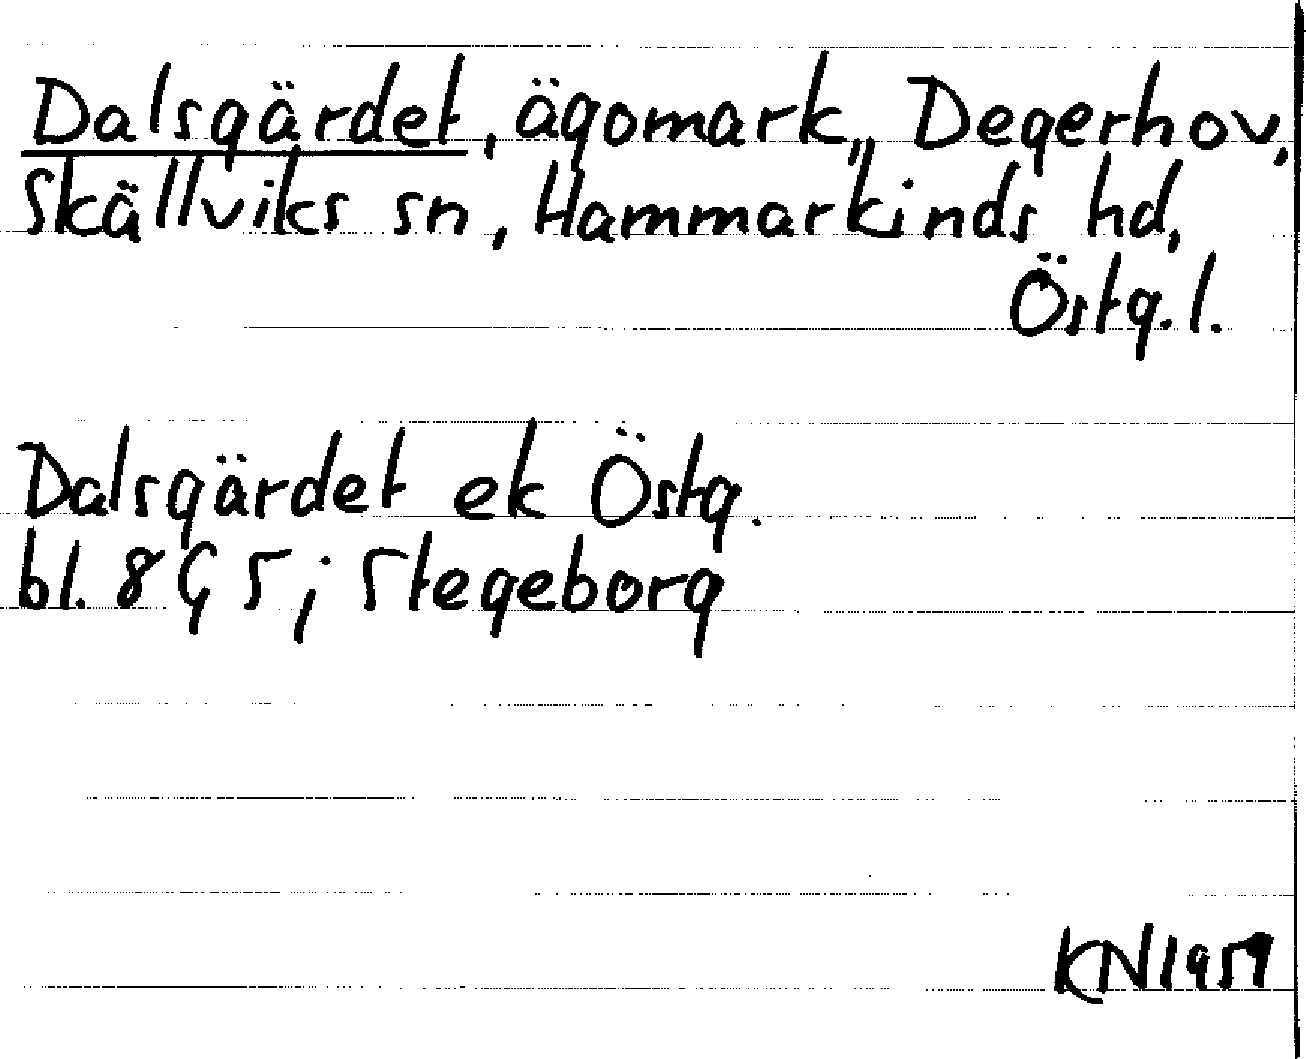 Dalsgärdet, ägomark,, Degerhov,
Skällviks sn, Hammarkinds hd,
Östg.l.
Dalsgärdet ek Östg.
bl. 8 G 5; Stegeborg
KN 1959